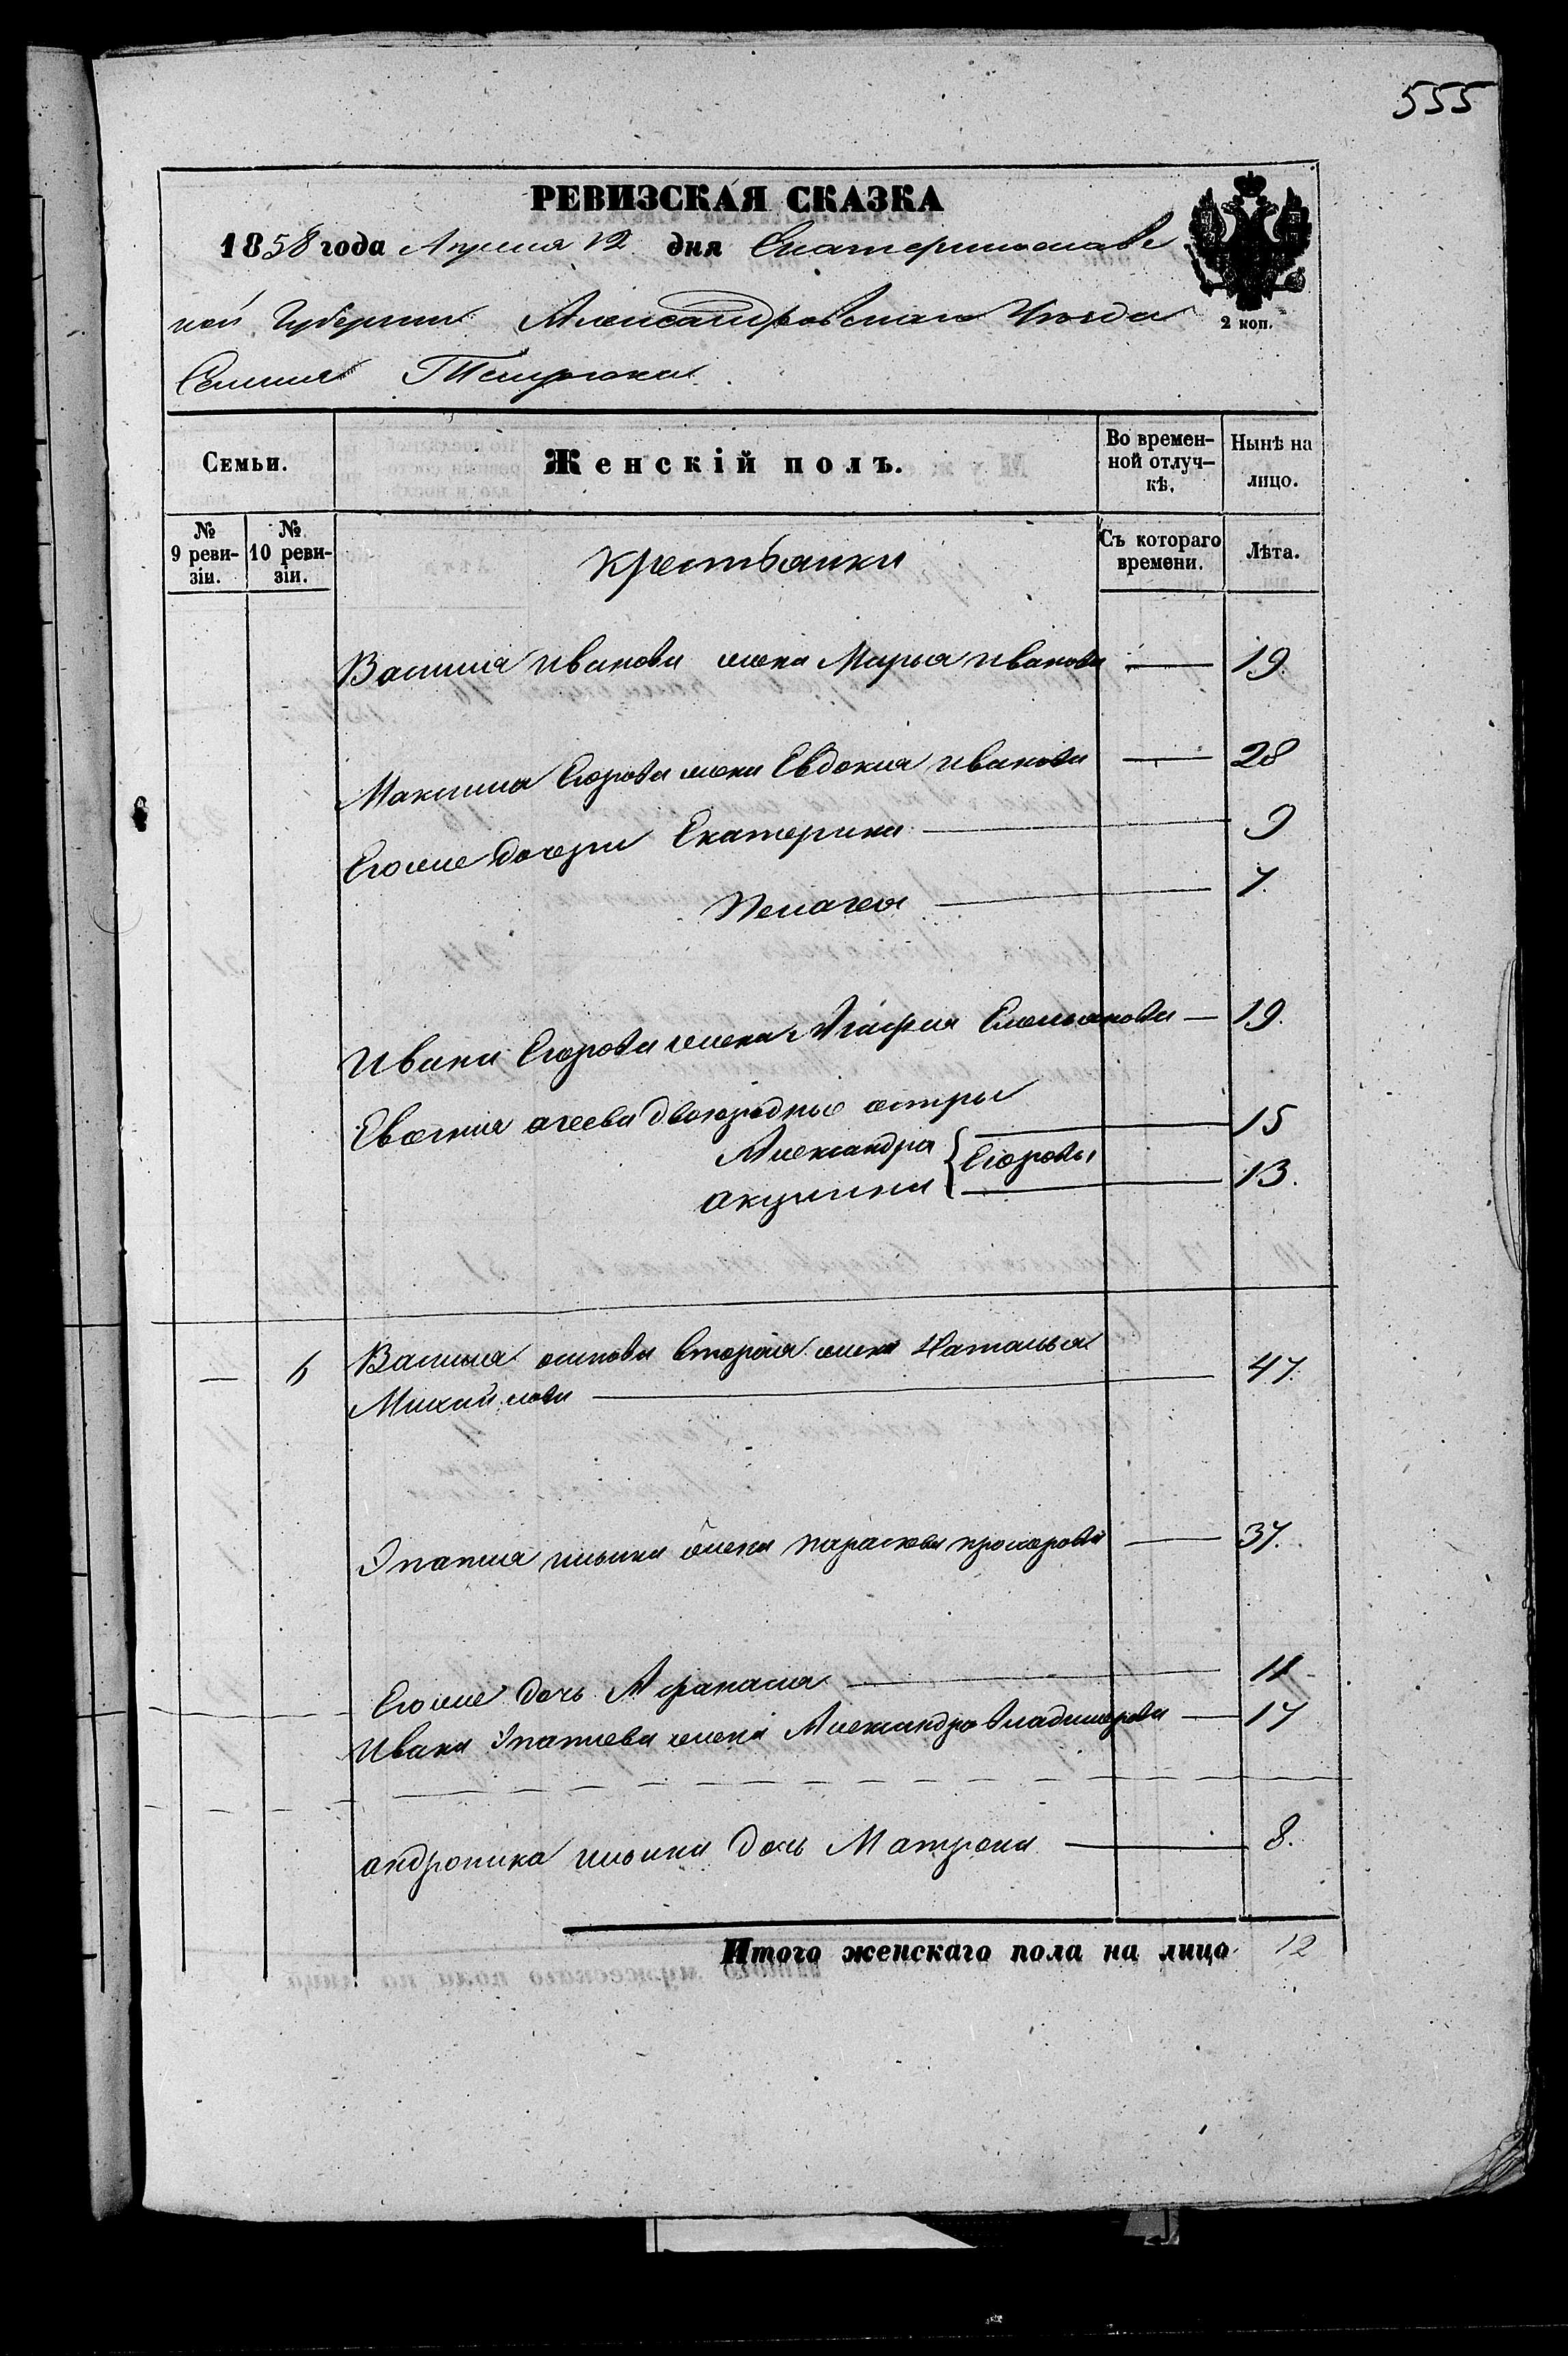 555
РЕВИЗСКАЯ СКАЗКА
1858 года Апреля 12 дня Екатеринославс
кой Губернии Александровскаго Уѣзда
Селения Темрюка
2 коп.
Семьи. Женскій полъ. Во времен- Нынѣ на
ной отлуч- лицо.
кѣ.
№ № Съ котораго Лѣта.
9 реви- 10 реви- времени.
зіи. зіи.
Крестьянки
Василия Иванова жена Марья Иванова — 19
Максима Егорова жена Евдокия Иванова — 28
Егоже дочери Екатерина — 9
Пелагея — 7
Ивана Егорова жена Агафия Емельянова — 19.
двоюродные сестры
Александра { Егоровы — 15
Акулина — 13.
— 6 Василия осипова вторая жена Наталья 47
Михайлова —
Ипатия ильина жена парасковья прохорова — 37.
Егоже дочь Афанасия — 11
Ивана Ипатиева жена Александра Владимерова — 17
андроника ильина дочь Матрона — 8.
Итого женскаго пола на лицо 12